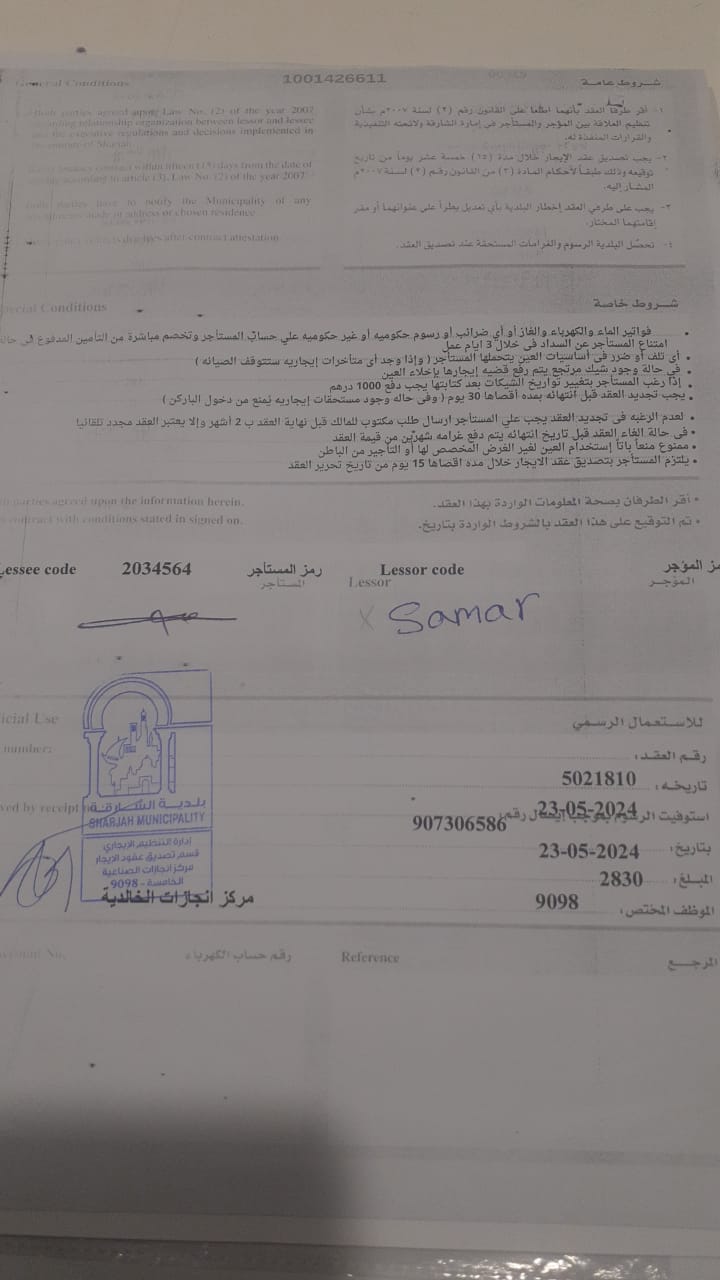 1001426611
General Conditions
شروط عامة
parties agreed upong Law No. (2) of the year 2007
relationship organization between lessor and lessee
the executive regulations and decisions implemented in
١- أقر طرفا العقد بأنهما اطلعا على القانون رقم (٢) لسنة ٢٠٠٧م بشأن
تنظيم العلاقة بين المؤجر والمستأجر في إمارة الشارقة ولائحته التنفيذية
والقرارات المنفذة له.
contract within fifteen (15) days from the date of
according to article (3), Law No. (2) of the year 2007
٢- يجب تصديق عقد الإيجار خلال مدة (١٥) خمسة عشر يوماً من تاريخ
توقيعه وذلك طبقاً لأحكام المادة (٣) من القانون رقم (٢) لسنة ٢٠٠٧م
المشار إليه.
parties have to notify the Municipality of any
of address or chosen residence
٣- يجب على طرفي العقد إخطار البلدية بأي تعديل يطرأ على عنوانهما أو مقر
إقامتهما المختار.
after contract attestation
٤- تحصل البلدية الرسوم والغرامات المستحقة عند تصديق العقد.
Special Conditions
شروط خاصة
• فواتير الماء والكهرباء والغاز أو أي ضرائب أو رسوم حكوميه أو غير حكوميه علي حساب المستأجر وتخصم مباشرة من التأمين المدفوع في
امتناع المستأجر عن السداد فى خلال 3 ايام عمل
• أي تلف أو ضرر فى أساسيات العين يتحملها المستأجر ( وإذا وجد أى متأخرات إيجاريه ستتوقف الصيانه )
• في حالة وجود شيك مرتجع يتم رفع قضيه إيجارها بإخلاء العين
• إذا رغب المستأجر بتغيير تواريخ الشيكات بعد كتابتها يجب دفع 1000 درهم
• يجب تجديد العقد قبل انتهائه بمده أقصاها 30 يوم ( وفى حاله وجود مستحقات إيجاريه يُمنع من دخول الباركن )
• لعدم الرغبه فى تجديد العقد يجب علي المستأجر ارسال طلب مكتوب للمالك قبل نهاية العقد ب 2 أشهر وإلا يعتبر العقد مجدد تلقائيا
• فى حالة الغاء العقد قبل تاريخ انتهائه يتم دفع غرامه شهرين من قيمة العقد
• ممنوع منعاً باتاً إستخدام العين لغير الغرض المخصص لها أو التأجير من الباطن
• يلتزم المستأجر بتصديق عقد الايجار خلال مده اقصاها 15 يوم من تاريخ تحرير العقد
parties agreed upon the information herein.
• أقر الطرفان بصحة المعلومات الواردة بهذا العقد.
contract with conditions stated in signed on.
• تم التوقيع على هذا العقد بالشروط الواردة بتاريخ.
Lessee code 2034564 رمز المستأجر Lessor code رمز المؤجر
المستأجر Lessor المؤجر
X Samar
Official Use
للاستعمال الرسمي
number:
رقم العقد:
5021810
تاريخه:
23-05-2024
received by receipt no
استوفيت الرسوم بموجب إيصال رقم:
907306586
بتاريخ:
23-05-2024
المبلغ:
2830
الموظف المختص:
9098
بلدية الشارقة
SHARJAH MUNICIPALITY
إدارة التنظيم الإيجاري
قسم تصديق عقود الإيجار
مركز انجازات الصناعية
الخامسة - 9098
مركز انجازات الخالدية
Account No.
رقم حساب الكهرباء
Reference
المرجع